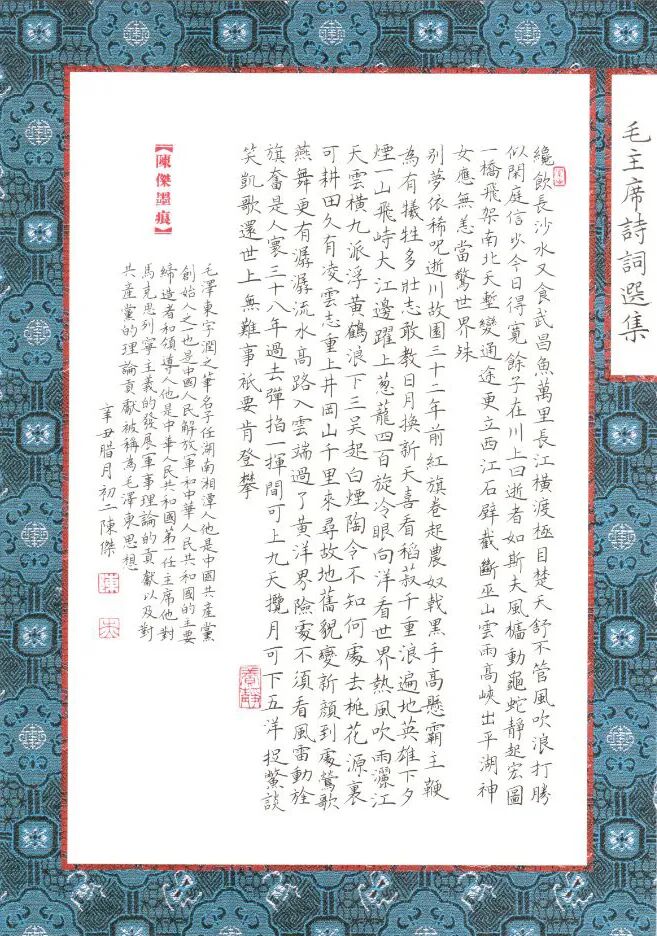 毛主席詩詞選集
纔飲長沙水又食武昌魚萬里長江橫渡極目楚天舒不管風吹浪打勝
似閑庭信步今日得寬餘子在川上曰逝者如斯夫風檣動龜蛇靜起宏圖
一橋飛架南北天塹變通途更立西江石壁截斷巫山雲雨高峽出平湖神
女應無恙當驚世界殊
別夢依稀呪逝川故園三十二年前紅旗卷起農奴戟黑手高懸霸主鞭
為有犧牲多壯志敢教日月換新天喜看稻菽千重浪遍地英雄下夕
煙一山飛峙大江邊躍上蔥蘢四百旋冷眼向洋看世界熱風吹雨灑江
天雲橫九派浮黃鶴浪下三吳起白煙陶令不知何處去桃花源裏
可耕田久有凌雲志重上井岡山千里來尋故地舊貌變新顏到處鶯歌
燕舞更有潺潺流水高路入雲端過了黃洋界險處不須看風雷動旌
旗奮是人寰三十八年過去彈指一揮間可上九天攬月可下五洋捉鱉談
笑凱歌還世上無難事祇要肯登攀
【陳傑墨痕】
毛澤東字潤之筆名子任湖南湘潭人他是中國共產黨
創始人之一也是中國人民解放軍和中華人民共和國的主要
締造者和領導人他是中華人民共和國第一任主席他對
馬克思列寧主義的發展軍事理論的貢獻以及對
共產黨的理論貢獻被稱為毛澤東思想
辛丑腊月初二陳傑